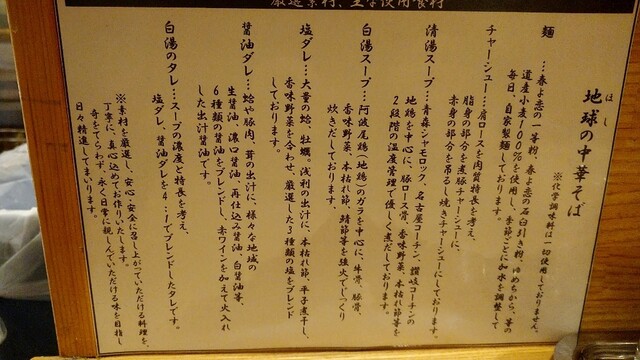 厳選素材、主な使用食材
地球の中華そば
ほし
※化学調味料は一切使用しておりません。
麺…春よ恋の一等粉、春よ恋の石臼引き粉、ゆめちから、等の
道産小麦100%を使用し、季節ごとに加水を調整して
毎日、自家製麺しております。
チャーシュー…肩ロースを肉質特長を考え、
脂身の部分を煮豚チャーシューに、
赤身の部分を吊るし焼きチャーシューにしております。
清湯スープ…青森シャモロック、名古屋コーチン、讃岐コーチンの
地鶏を中心に、豚ロース骨、香味野菜、本枯れ節等を
2段階の温度管理で優しく煮だしております。
白湯スープ…阿波尾鶏(地鶏)のガラを中心に、牛骨、豚骨、
香味野菜、本枯れ節、鯖節等を強火でじっくり
炊きだしております。
塩ダレ…大量の蛤、牡蠣。浅利の出汁に、本枯れ節、平子煮干し、
香味野菜を合わせ、厳選した3種類の塩をブレンド
しております。
醤油ダレ…蛤や豚肉、茸の出汁に、様々な地域の
生醤油、濃口醤油、再仕込み醤油、白醤油等、
6種類の醤油をブレンドし、赤ワインを加えて火入れ
した出汁醤油です。
白湯のタレ…スープの濃度と特長を考え、
塩ダレ、醤油ダレを4:1でブレンドしたタレです。
※素材を厳選し、安心・安全に召し上がっていただける料理を、
丁寧に、真心込めてお作りいたします。
奇をてらわず、永く日常に親しんでいただける味を目指し
日々精進してまいります。